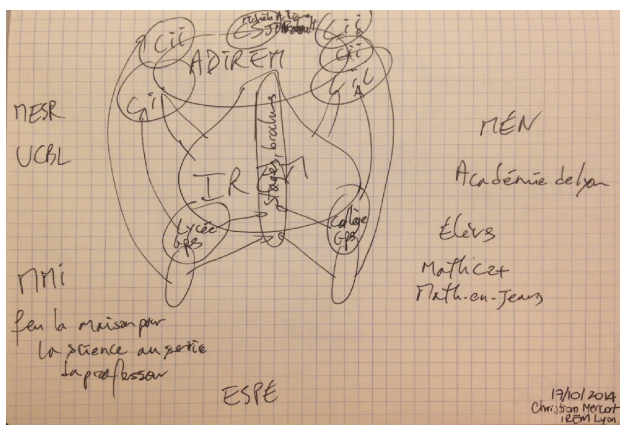 Cii
CS
Cii
Cii
ADIREM
Cii
Cii
MESR
UCBL
MEN
Académie de Lyon
stages, brochures
IREM
Lycée
Gps
Collège
Gps
Élèves
MathC2+
Math-en-Jeans
MMI
feu la maison pour
la science au service
du professeur
ESPÉ
17/10/2014
Christian Mercat
IREM Lyon